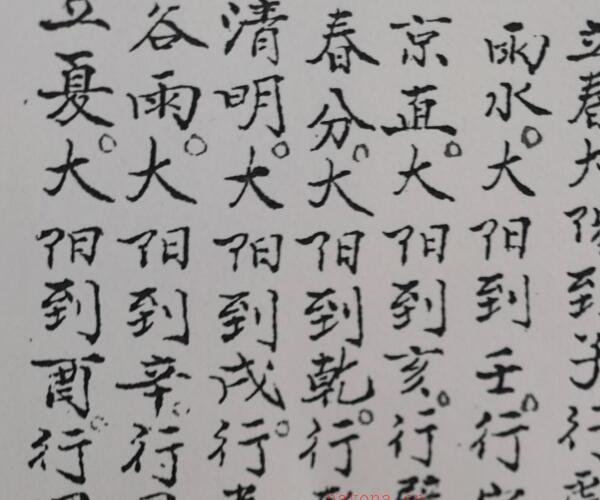 立春大陽到子行
雨水。大阳到壬。行
京直。大阳到亥。行
春分。大阳到乾。行
清明。大阳到戌。行
谷雨。大阳到辛。行
立夏。大阳到酉。行